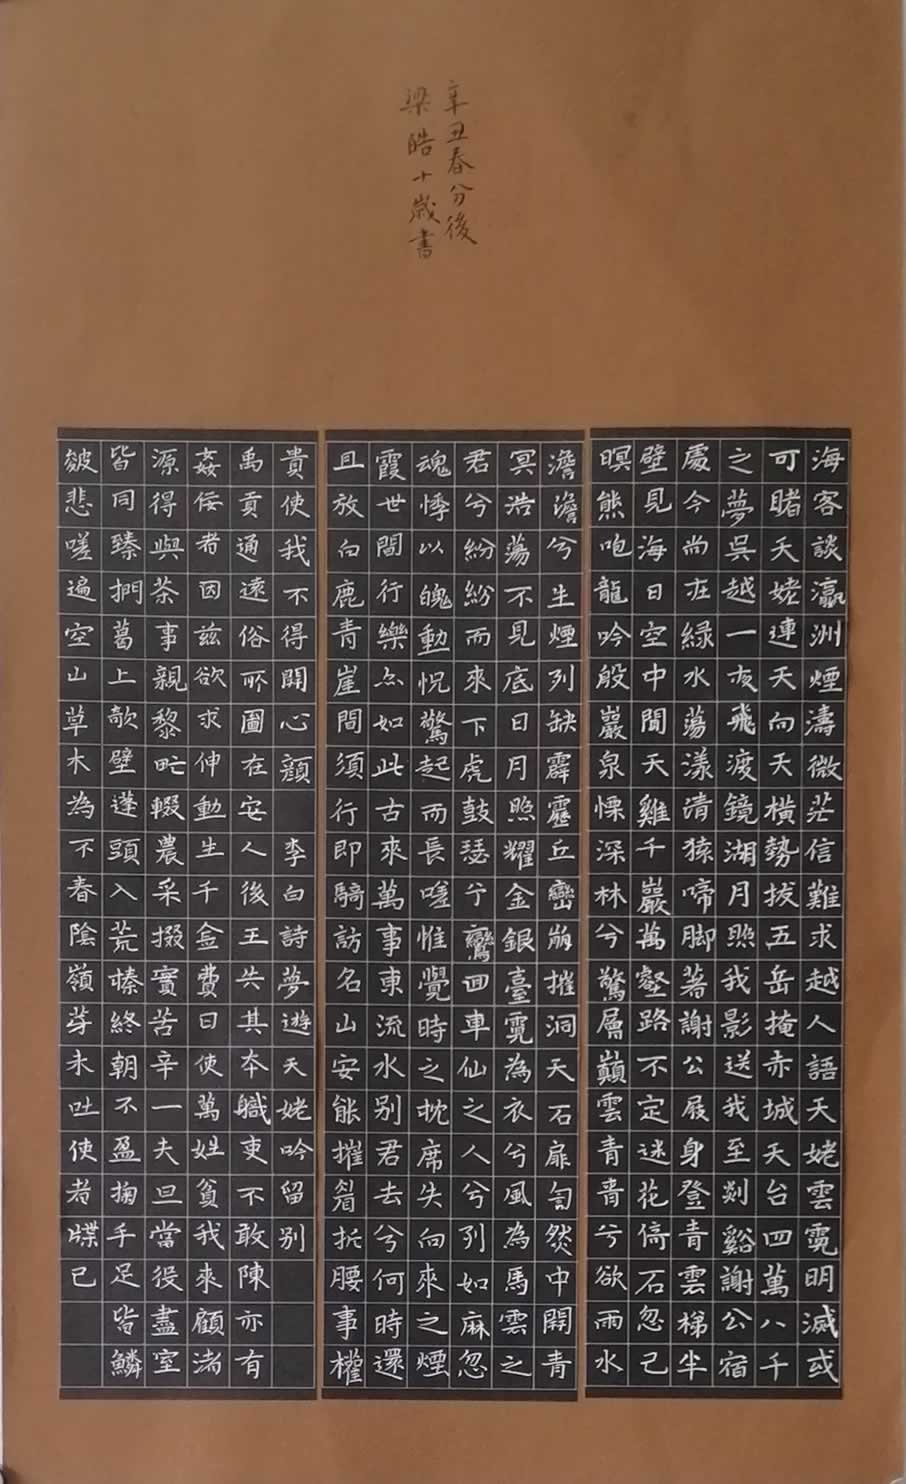 辛丑春分後
梁皓十歲書
海客談瀛洲煙濤微茫信難求越人語天姥雲霓明滅或
可睹天姥連天向天橫勢拔五岳掩赤城天台四萬八千
之夢吳越一夜飛渡鏡湖月照我影送我至剡谿謝公宿
處今尚在綠水蕩漾清猿啼脚著謝公屐身登青雲梯半
壁見海日空中聞天雞千巖萬壑路不定迷花倚石忽已
暝熊咆龍吟殷巖泉慄深林兮驚層巔雲青青兮欲雨水
澹澹兮生煙列缺霹靂丘巒崩摧洞天石扉訇然中開青
冥浩蕩不見底日月照耀金銀臺霓為衣兮風為馬雲之
君兮紛紛而來下虎鼓瑟兮鸞回車仙之人兮列如麻忽
魂悸以魄動怳驚起而長嗟惟覺時之枕席失向來之煙
霞世間行樂亦如此古來萬事東流水別君去兮何時還
且放白鹿青崖間須行即騎訪名山安能摧眉折腰事權
貴使我不得開心顏 李白詩夢遊天姥吟留別
禹貢通遠俗所圖在安人後王失其本職吏不敢陳亦有
姦佞者因茲欲求伸動生千金費日使萬姓貧我來顧渚
源得與茶事親黎甿輟農采掇實苦辛一夫旦當役盡室
皆同臻捫葛上欹壁蓬頭入荒榛終朝不盈掬手足皆鱗
皴悲嗟遍空山草木為不春陰嶺芽未吐使者牒已